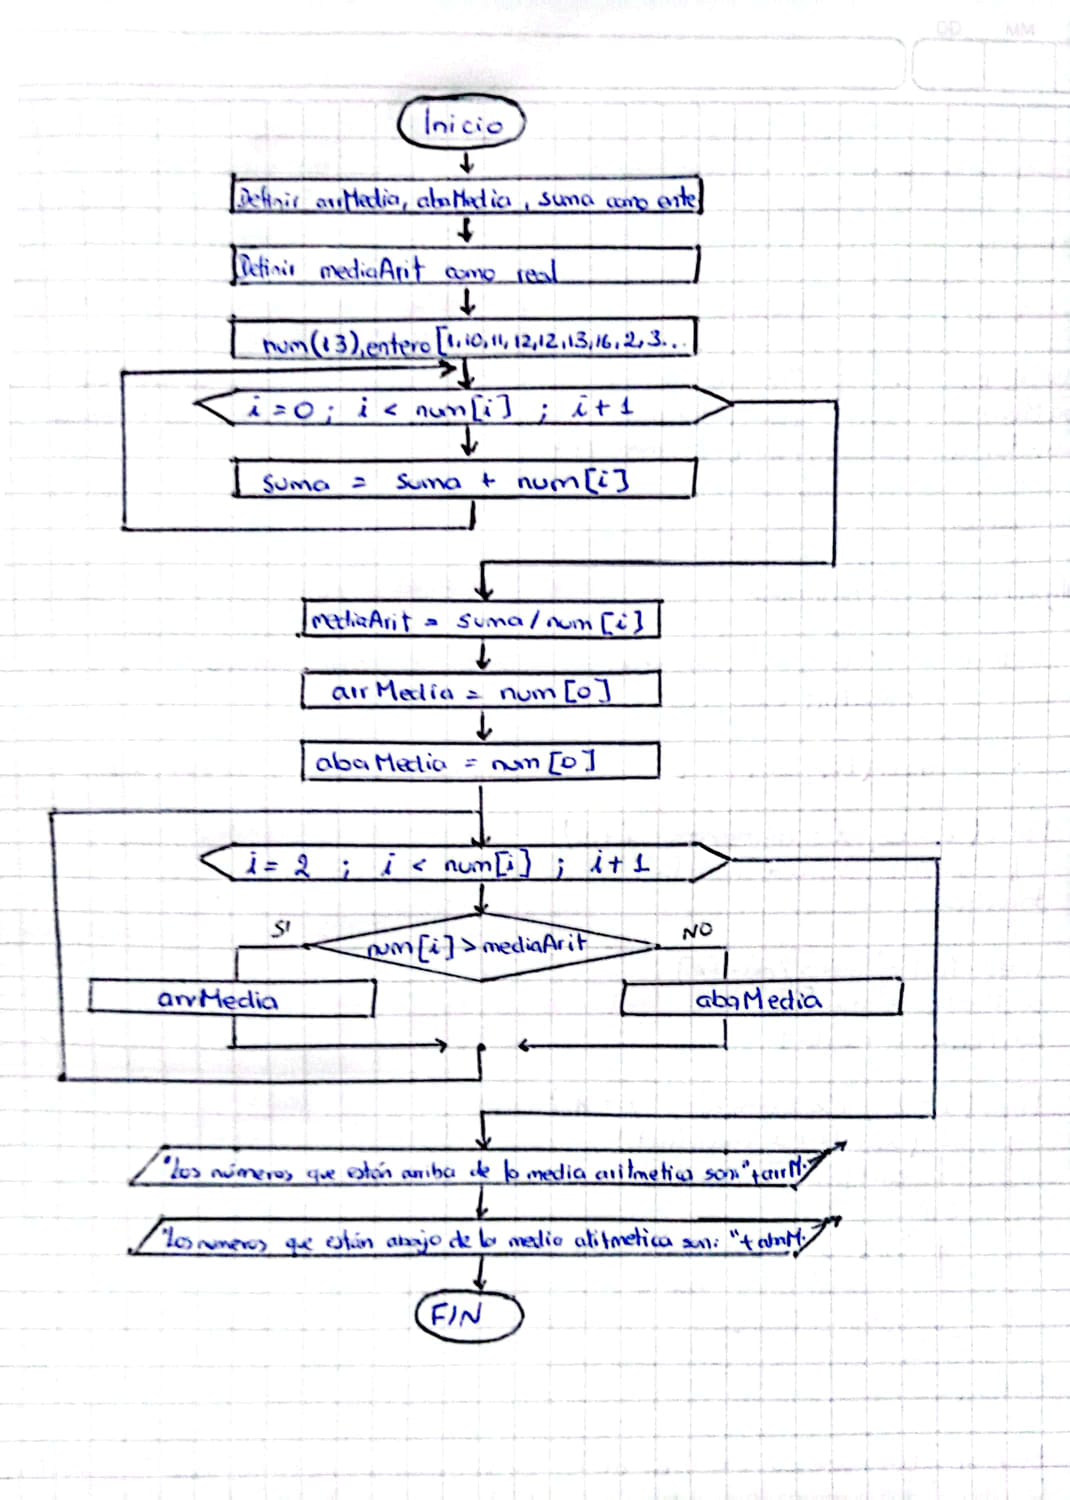 DD MM
Inicio
Definir arrMedia, abaMedia, suma como ente
Definir mediaArit como real
num(13),entero [1,10,11,12,12,13,16,2,3...
i = 0 ; i < num[i] ; i+1
suma = suma + num[i]
mediaArit = suma/num[i]
arrMedia = num[0]
abaMedia = num[0]
i = 2 ; i < num[i] ; i+1
SI NO
num[i] > mediaArit
arrMedia abaMedia
"Los números que están arriba de la media aritmetica son:"+arrM.
"Los numeros que están abajo de la media aritmetica son: "+abaM.
FIN